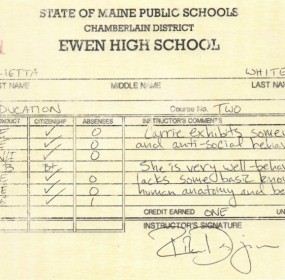 STATE OF MAINE PUBLIC SCHOOLS
CHAMBERLAIN DISTRICT
EWEN HIGH SCHOOL
IETTA WHITE
LAST NA MIDDLE NAME LAST NAM
DUCATION Course No. TWO
CONDUCT CITIZENSHIP ABSENSES INSTRUCTOR'S COMMENTS
E ✓ 0 Carrie exhibits some
✓ 0 and anti-social behavi
✓ 0
B B+ She is very well-behav
E ✓ 0 lacks some basic know
E ✓ 0 human anatomy and be
✓ 1
CREDIT EARNED ONE UN
INSTRUCTOR'S SIGNATURE